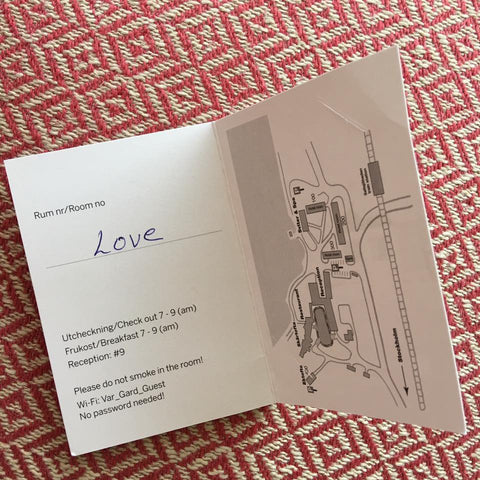 Rum nr/Room no
Love
Utcheckning/Check out 7 - 9 (am)
Frukost/Breakfast 7 - 9 (am)
Reception: #9
Please do not smoke in the room!
Wi-Fi: Var_Gard_Guest
No password needed!
Reception
Restaurant
Stockholm